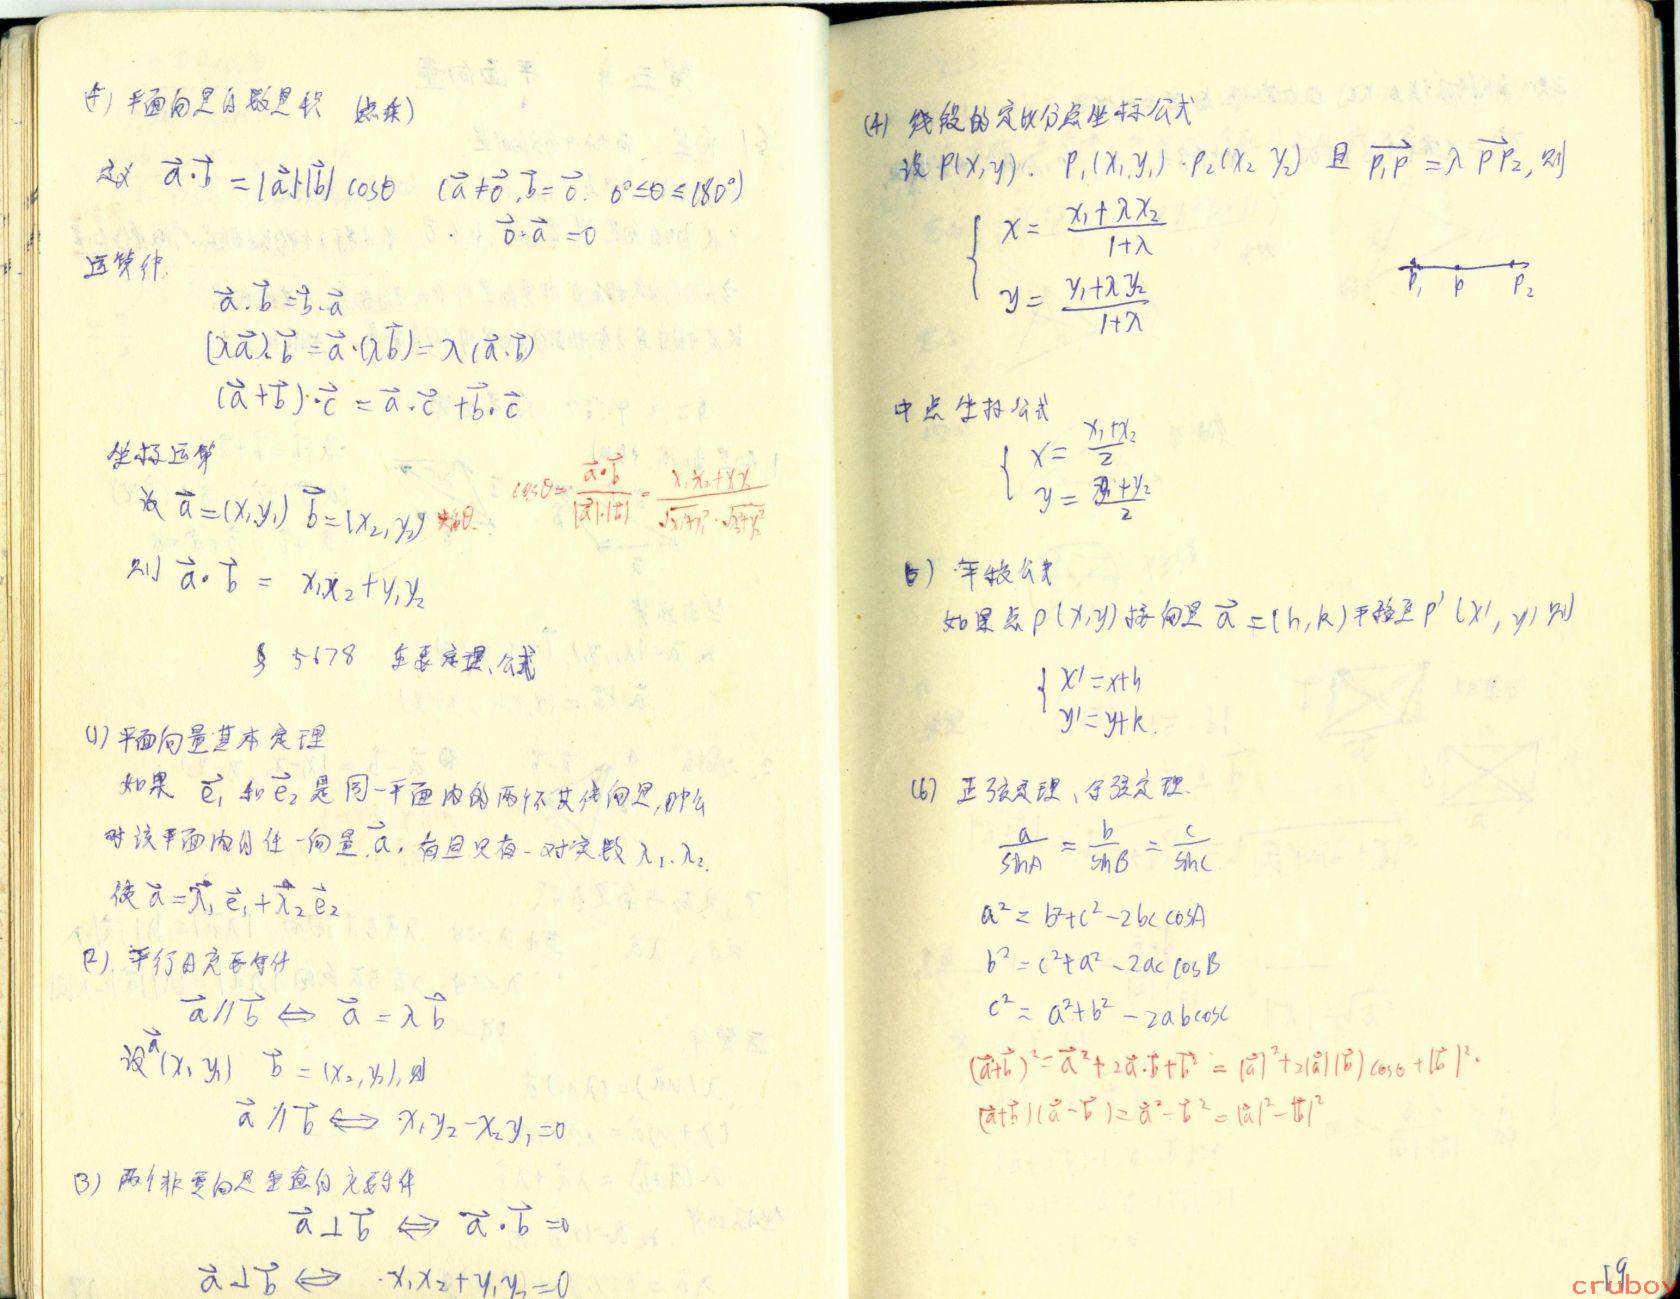 (5) 平面向量的数量积 (点乘)
定义 a⃗·b⃗ = |a⃗|·|b⃗| cosθ (a⃗≠0⃗, b⃗=0⃗. 0°≤θ≤180°)
0⃗·a⃗ = 0
运算律
a⃗·b⃗ = b⃗·a⃗
(λa⃗)·b⃗ = a⃗·(λb⃗) = λ(a⃗·b⃗)
(a⃗+b⃗)·c⃗ = a⃗·c⃗ + b⃗·c⃗
坐标运算
设 a⃗=(x₁,y₁) b⃗=(x₂,y₂) 夹角θ. cosθ = a⃗·b⃗/|a⃗|·|b⃗| = x₁x₂+y₁y₂/√x₁²+y₁²·√x₂²+y₂²
则 a⃗·b⃗ = x₁x₂+y₁y₂
§ 5678 主要定理、公式
(1) 平面向量基本定理
如果 e⃗₁ 和 e⃗₂ 是同一平面内的两个不共线向量,那么
对该平面内的任一向量 a⃗, 有且只有一对实数 λ₁、λ₂.
使 a⃗=λ⃗₁e⃗₁+λ⃗₂e⃗₂
(2). 平行的充要条件
a⃗∥b⃗ ⇔ a⃗ = λb⃗
设 a⃗(x₁,y₁) b⃗=(x₂,y₂),则
a⃗∥b⃗ ⇔ x₁y₂-x₂y₁=0
(3) 两个非零向量垂直的充要条件
a⃗⊥b⃗ ⇔ a⃗·b⃗=0
a⃗⊥b⃗ ⇔ x₁x₂+y₁y₂=0
(4) 线段的定比分点坐标公式
设 P(x,y). P₁(x₁,y₁)·P₂(x₂ y₂) 且 P₁P⃗ = λ PP₂⃗, 则
{ x = x₁+λx₂/1+λ
y = y₁+λy₂/1+λ
P₁ P P₂
中点坐标公式
{ x = x₁+x₂/2
y = y₁+y₂/2
(5) 平移公式
如果点P(x,y)按向量 a⃗=(h,k)平移至P'(x',y)则
{ x'=x+h
y'=y+k.
(6) 正弦定理、余弦定理.
a/sinA = b/sinB = c/sinC
a²=b²+c²-2bc cosA
b²=c²+a²-2ac cosB
c²=a²+b²-2abcosC
(a⃗+b⃗)²=a⃗²+2a⃗·b⃗+b⃗²=|a⃗|²+2|a⃗||b⃗|cosθ+|b⃗|².
(a⃗+b⃗)(a⃗-b⃗)=a⃗²-b⃗²=|a⃗|²-|b⃗|²
19
cruboy